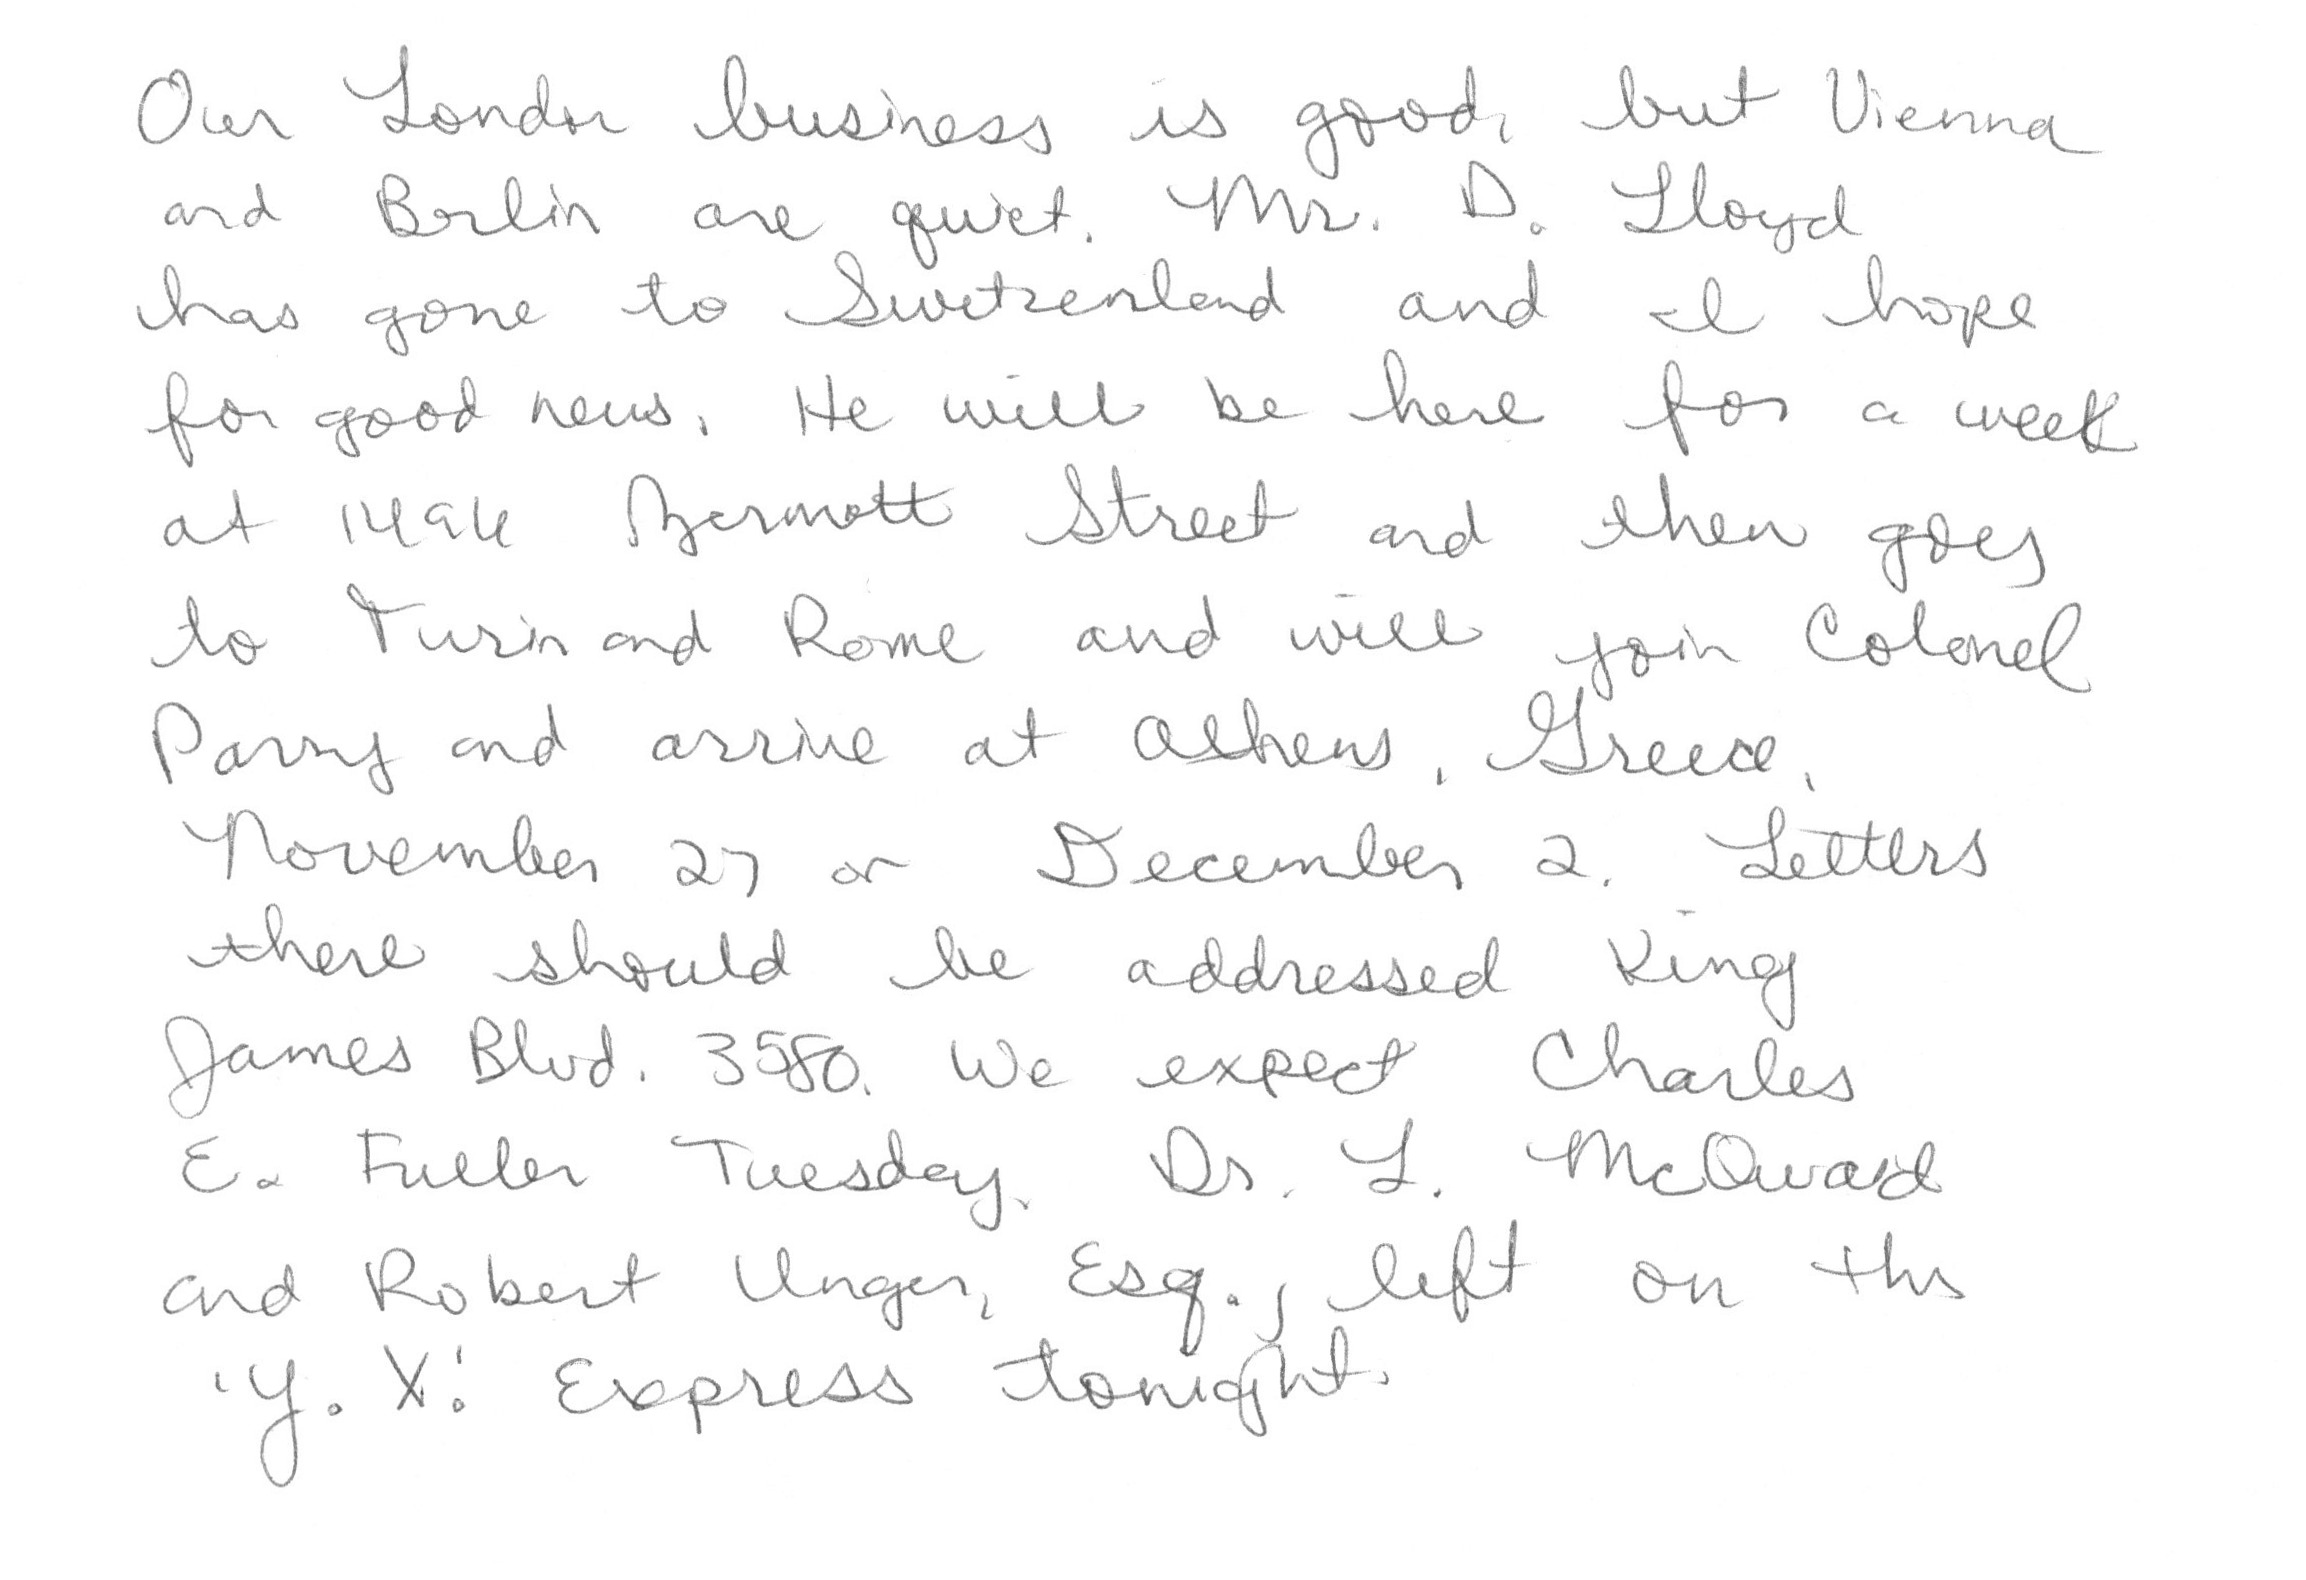 Our London business is good, but Vienna
and Berlin are quiet. Mr. D. Lloyd
has gone to Switzerland and I hope
for good news. He will be here for a week
at 1496 Zermott Street and then goes
to Turin and Rome and will join Colonel
Parry and arrive at Athens, Greece,
November 27 or December 2. Letters
there should be addressed King
James Blvd. 3580. We expect Charles
E. Fuller Tuesday. Dr. L. McQuaid
and Robert Unger, Esq., left on the
'Y. X.' Express tonight.